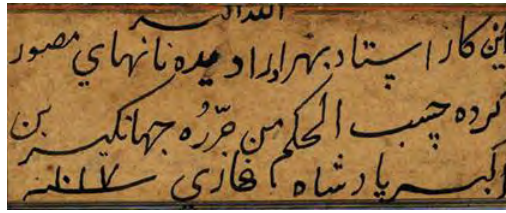 الله اکبر
این کار استاد بهزاد را دیده نانهای مصور
کرده حسب الحکم من حرره جهانگیر بن
اکبر پادشاه غازی سنه ۱۰۱۷